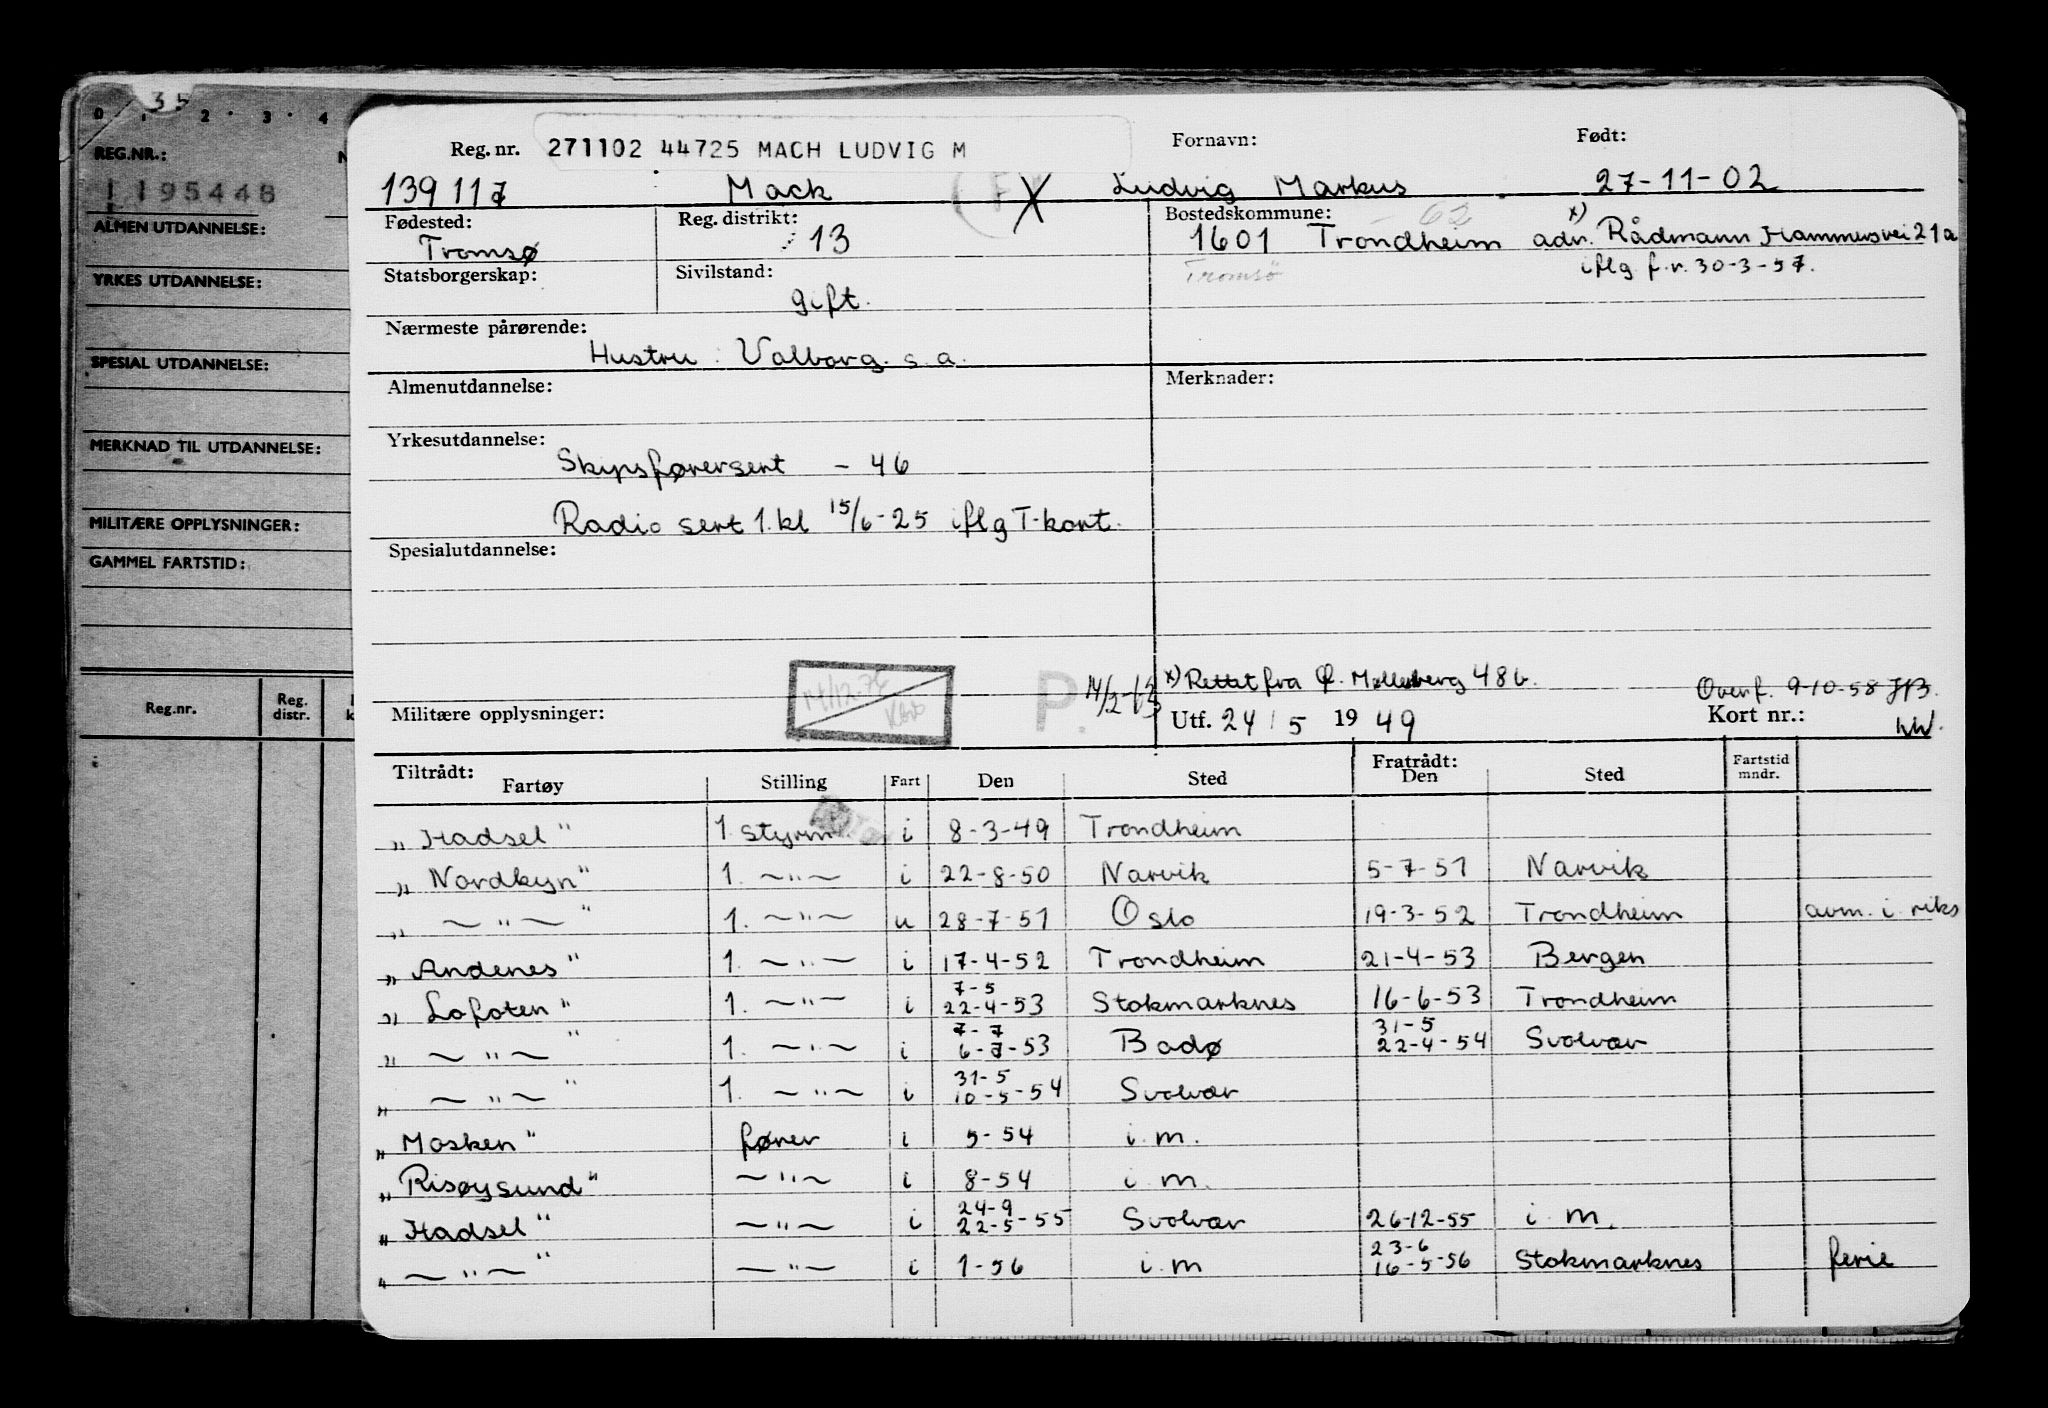 35
0 1 2 3 4
REG.NR.: N
1195448
ALMEN UTDANNELSE:
YRKES UTDANNELSE:
SPESIAL UTDANNELSE:
MERKNAD TIL UTDANNELSE:
MILITÆRE OPPLYSNINGER:
GAMMEL FARTSTID:
Reg.nr. Reg. distr.
Reg. nr. 271102 44725 MACH LUDVIG M Fornavn: Født:
139 117 Mack (F) X Ludvig Markus 27-11-02
Fødested: Reg. distrikt: Bostedskommune: 62 x)
Tromsø 13 1601 Trondheim adr. Rådmann Hammersvei 21a
Statsborgerskap: Sivilstand: Tromsö iflg f.r. 30-3-57.
gift.
Nærmeste pårørende:
Hustru: Valborg s.a.
Almenutdannelse: Merknader:
Yrkesutdannelse:
Skipsførersert - 46
Radio sert 1.kl 15/6-25 iflg T-kort.
Spesialutdannelse:
P. 14/2-63 x) Rettet fra Ø. Møllenberg 48b. Overf. 9-10-58
Militære opplysninger: Utf. 24/5 1949 Kort nr.:
Tiltrådt: Fartøy Stilling Fart Den Sted Fratrådt: Den Sted Fartstid mndr.
„Hadsel" 1. styrm i 8-3-49 Trondheim
„Nordkyn" 1. ~"~ i 22-8-50 Narvik 5-7-51 Narvik
„~"~" 1. ~"~ u 28-7-51 Oslo 19-3-52 Trondheim avm. i riks
„Andenes" 1. ~"~ i 17-4-52 Trondheim 21-4-53 Bergen
7-5
„Lofoten" 1. ~"~ i 22-4-53 Stokmarknes 16-6-53 Trondheim
7-7 31-5
„~"~" 1. ~"~ i 6-7-53 Bodø 22-4-54 Svolvær
31-5
„~"~" 1. ~"~ i 10-5-54 Svolvær
„Mosken" fører i 5-54 i.m.
„Risøysund" ~"~ i 8-54 i.m.
24-9
„Hadsel" ~"~ i 22-5-55 Svolvær 26-12-55 i.m.
23-6
„~"~" ~"~ i 1-56 i.m 16-5-56 Stokmarknes ferie